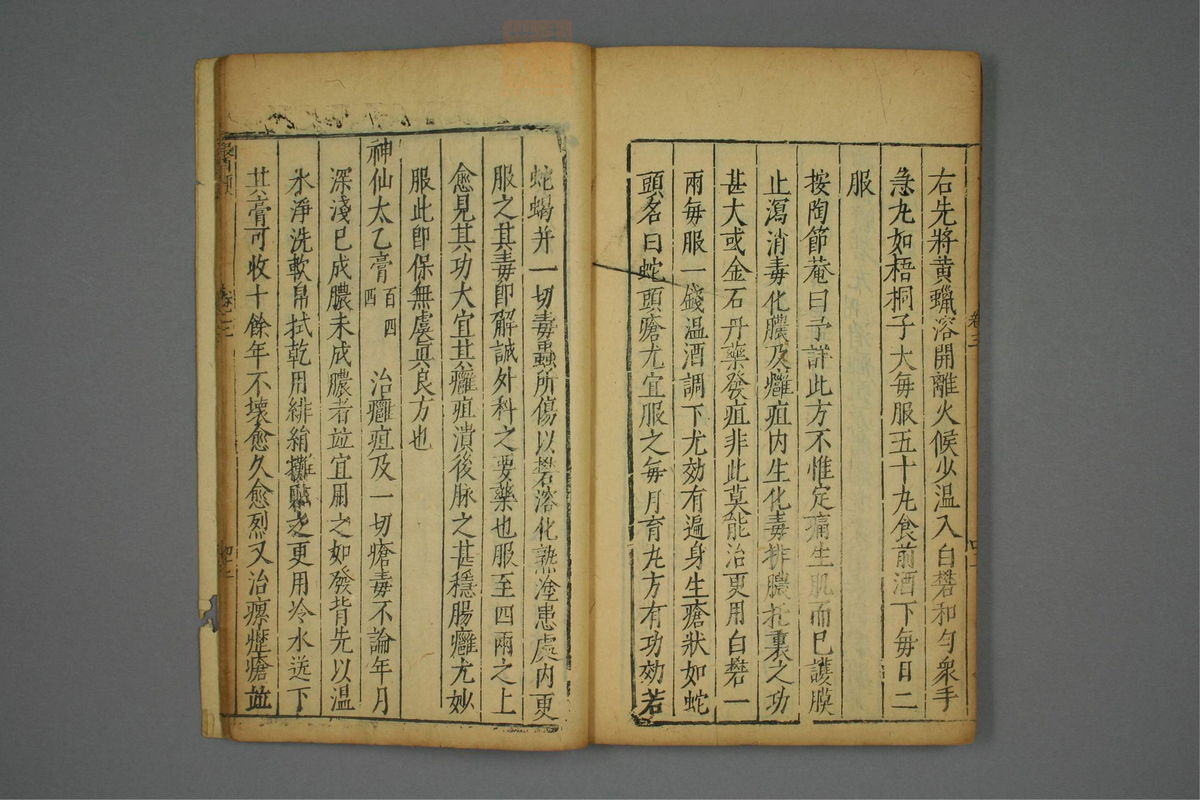 右先將黄蠟溶開離火候少温入白礬和勻衆手
急丸如梧桐子大毎服五十丸食前酒下毎日二
服
按陶節菴曰予詳此方不惟定痛生肌而已護膜
止瀉消毒化膿及癰疽内生化毒排膿托裏之功
甚大或金石丹藥發疽非此莫能治更用白礬一
兩毎服一錢温酒調下尤効有遍身生瘡狀如蛇
頭名曰蛇頭瘡尤宜服之毎月育丸方有功効若
卷三
蛇蝎并一切毒蟲所傷以礬溶化熱塗患處内更
服之其毒即解誠外科之要藥也服至四兩之上
愈見其功大宜其癰疽潰後脉之甚穩腸癰尤妙
服此即保無虞眞良方也
神仙太乙膏 百四四 治癰疽及一切瘡毒不論年月
深淺已成膿未成膿者並宜用之如發背先以温
水淨洗軟帛拭乾用緋絹攤貼之更用冷水送下
其膏可收十餘年不壊愈久愈烈又治瘰癧瘡並
卷三